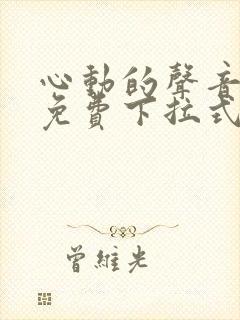 心動的聲音
免費下拉式
曾維光